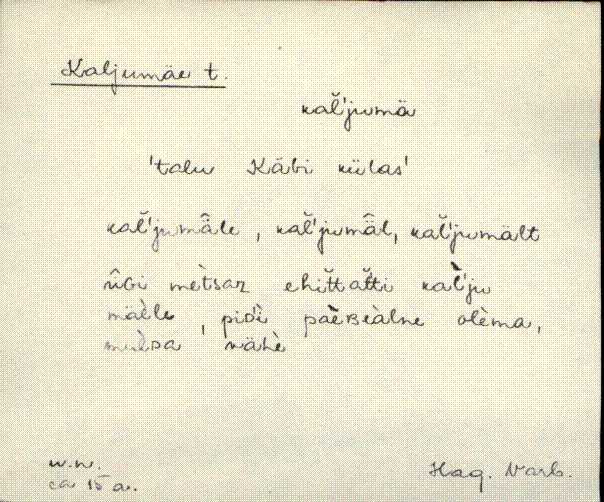 Kaljumäe t.
kal̆'jumä
'talu Käbi külas'
kal̆'jumä̂le, kal̆'jumä̂l, kal̆'jumält
ûʙi mètsaʀ ehit̆tat̆ti kal̀'ju
mäèle, piᴅ̀i pàèʙeàlne olèma,
mulᴅa vähè
w.w.
ca 15 a.
Hag. Varb.